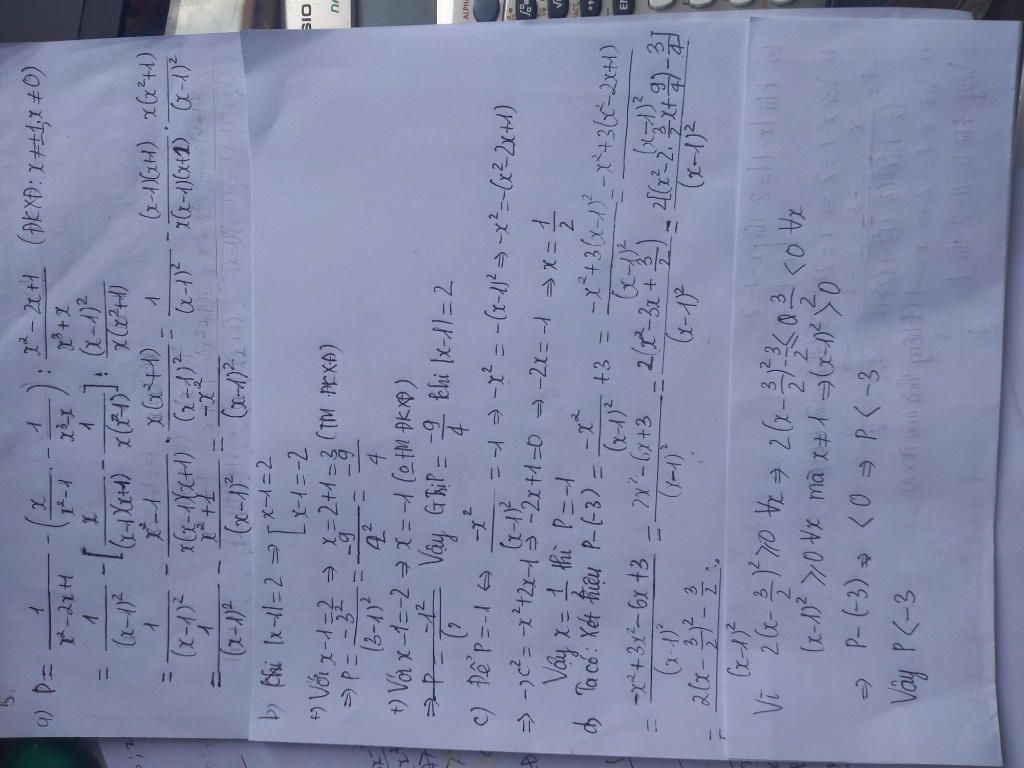 5.
a) P = 1/(x²-2x+1) - (x/(x²-1) - 1/(x³-x)) : (x²-2x+1)/(x³+x) (ĐKXĐ: x≠±1, x≠0)
= 1/(x-1)² - [x/((x-1)(x+1)) - 1/(x(x²-1))] : (x-1)²/(x(x²+1))
= 1/(x-1)² - (x²-1)/(x(x-1)(x+1)) . x(x²+1)/(x-1)² = 1/(x-1)² - (x-1)(x+1)/(x(x-1)(x+1)) . x(x²+1)/(x-1)²
= 1/(x+1)² - (x²+1)/(x-1)² = -x²/(x-1)²
b) Khi |x-1|=2 ⇒ [x-1=2
x-1=-2
+) Với x-1=2 ⇒ x=2+1=3 (TM ĐKXĐ)
⇒ P = -3²/(3-1)² = -9/2² = -9/4
+) Với x-1=-2 ⇒ x=-1 (0 TM ĐKXĐ)
Vậy GT: P = -9/4 khi |x-1|=2
c) Để P=-1 ⇔ -x²/(x-1)² = -1 ⇒ -x² = -(x-1)² ⇒ -x² = -(x²-2x+1)
⇒ -x² = -x²+2x-1 ⇒ -2x+1=0 ⇒ -2x=-1 ⇒ x = 1/2
Vậy x = 1/2 khi P=-1
d) Ta có: Xét hiệu P-(-3) = -x²/(x-1)² + 3 = (-x²+3(x-1)²)/(x-1)² = (-x²+3(x²-2x+1))/(x-1)²
= (-x²+3x²-6x+3)/(x-1)² = (2x²-6x+3)/(x-1)² = 2(x²-3x+3/2)/(x-1)² = 2[(x²-2.3/2x+9/4)-3/4]/(x-1)²
= (2(x-3/2)²-3/2)/(x-1)²
Vì 2(x-3/2)² ≥ 0 ∀x ⇒ 2(x-3/2)² 3/2 < 0 ∀x
(x-1)² ≥ 0 ∀x mà x≠1 ⇒ (x-1)² > 0
⇒ P-(-3) ⇒ < 0 ⇒ P < -3
Vậy P < -3